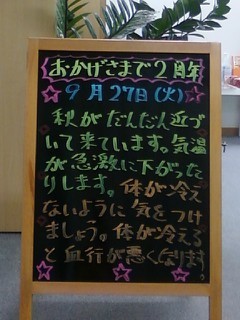 おかげさまで2周年
9月27日(火)
秋がだんだん近づ
いて来ています。気温
が急激に下がった
りします。体が冷え
ないように気をつけ
ましょう。体が冷える
と血行が悪くなります。